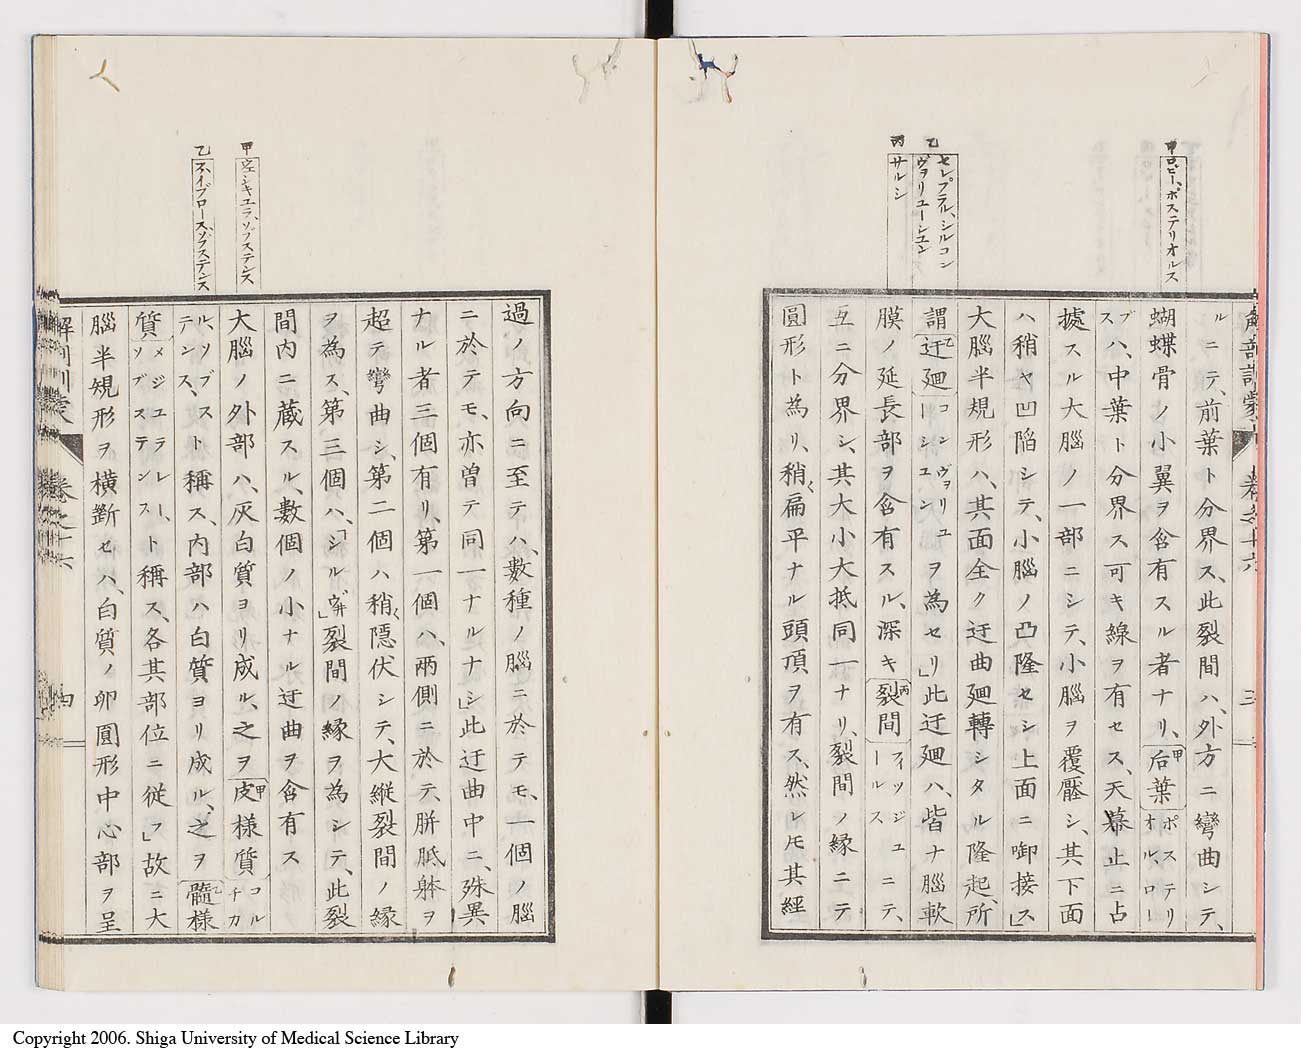 甲
ロビー、ポステリオルス
乙
セレブラル、シルコン
ヴヲリユーシユン
丙
サルシ
解剖訓蒙 卷之十六 三
ルニテ、前葉ト分界ス、此裂間ハ、外方ニ彎曲シテ、
蝴蝶骨ノ小翼ヲ含有スル者ナリ、后葉 甲 ポステリオル、ロー
ブスハ、中葉ト分界ス可キ線ヲ有セス、天幕止ニ占
據スル大腦ノ一部ニシテ、小腦ヲ覆壓シ、其下面
ハ稍ヤ凹陷シテ、小腦ノ凸隆セシ上面ニ啣接ス」
大腦半規形ハ、其面全ク迂曲廻轉シタル隆起、所
謂迂廻 乙 コンヴヲリユーシユン ヲ為セリ」此迂廻ハ、皆ナ腦軟
膜ノ延長部ヲ含有スル、深キ裂間 丙 フィッジュールス ニテ、
互ニ分界シ、其大小大抵同一ナリ、裂間ノ縁ニテ
圓形ト為リ、稍く扁平ナル頭頂ヲ有ス、然レモ其經
甲
ヴェシキユラ、ソブステンス
乙
フ、イブロース、ソブステンス
過ノ方向ニ至テハ、數種ノ腦ニ於テモ、一個ノ腦
ニ於テモ、亦曽テ同一ナルナシ」此迂曲中ニ、殊異
ナル者三個有リ、第一個ハ、兩側ニ於テ、胼胝躰ヲ
超テ彎曲シ、第二個ハ稍く隱伏シテ、大縦裂間ノ縁
ヲ為ス、第三個ハ、「シルヴィ」裂間ノ縁ヲ為シテ、此裂
間内ニ蔵スル、數個ノ小ナル迂曲ヲ含有ス
大腦ノ外部ハ、灰白質ヨリ成ル、之ヲ皮様質 甲 コルチカ
ル、ソブステンス、ト稱ス、内部ハ白質ヨリ成ル、之ヲ髓様 乙
質 メジユラレー、ソブステンス、ト稱ス、各其部位ニ從フ」故ニ大
腦半規形ヲ横斷セハ、白質ノ卵圓形中心部ヲ呈
解剖訓蒙 卷之十六 四
Copyright 2006. Shiga University of Medical Science Library